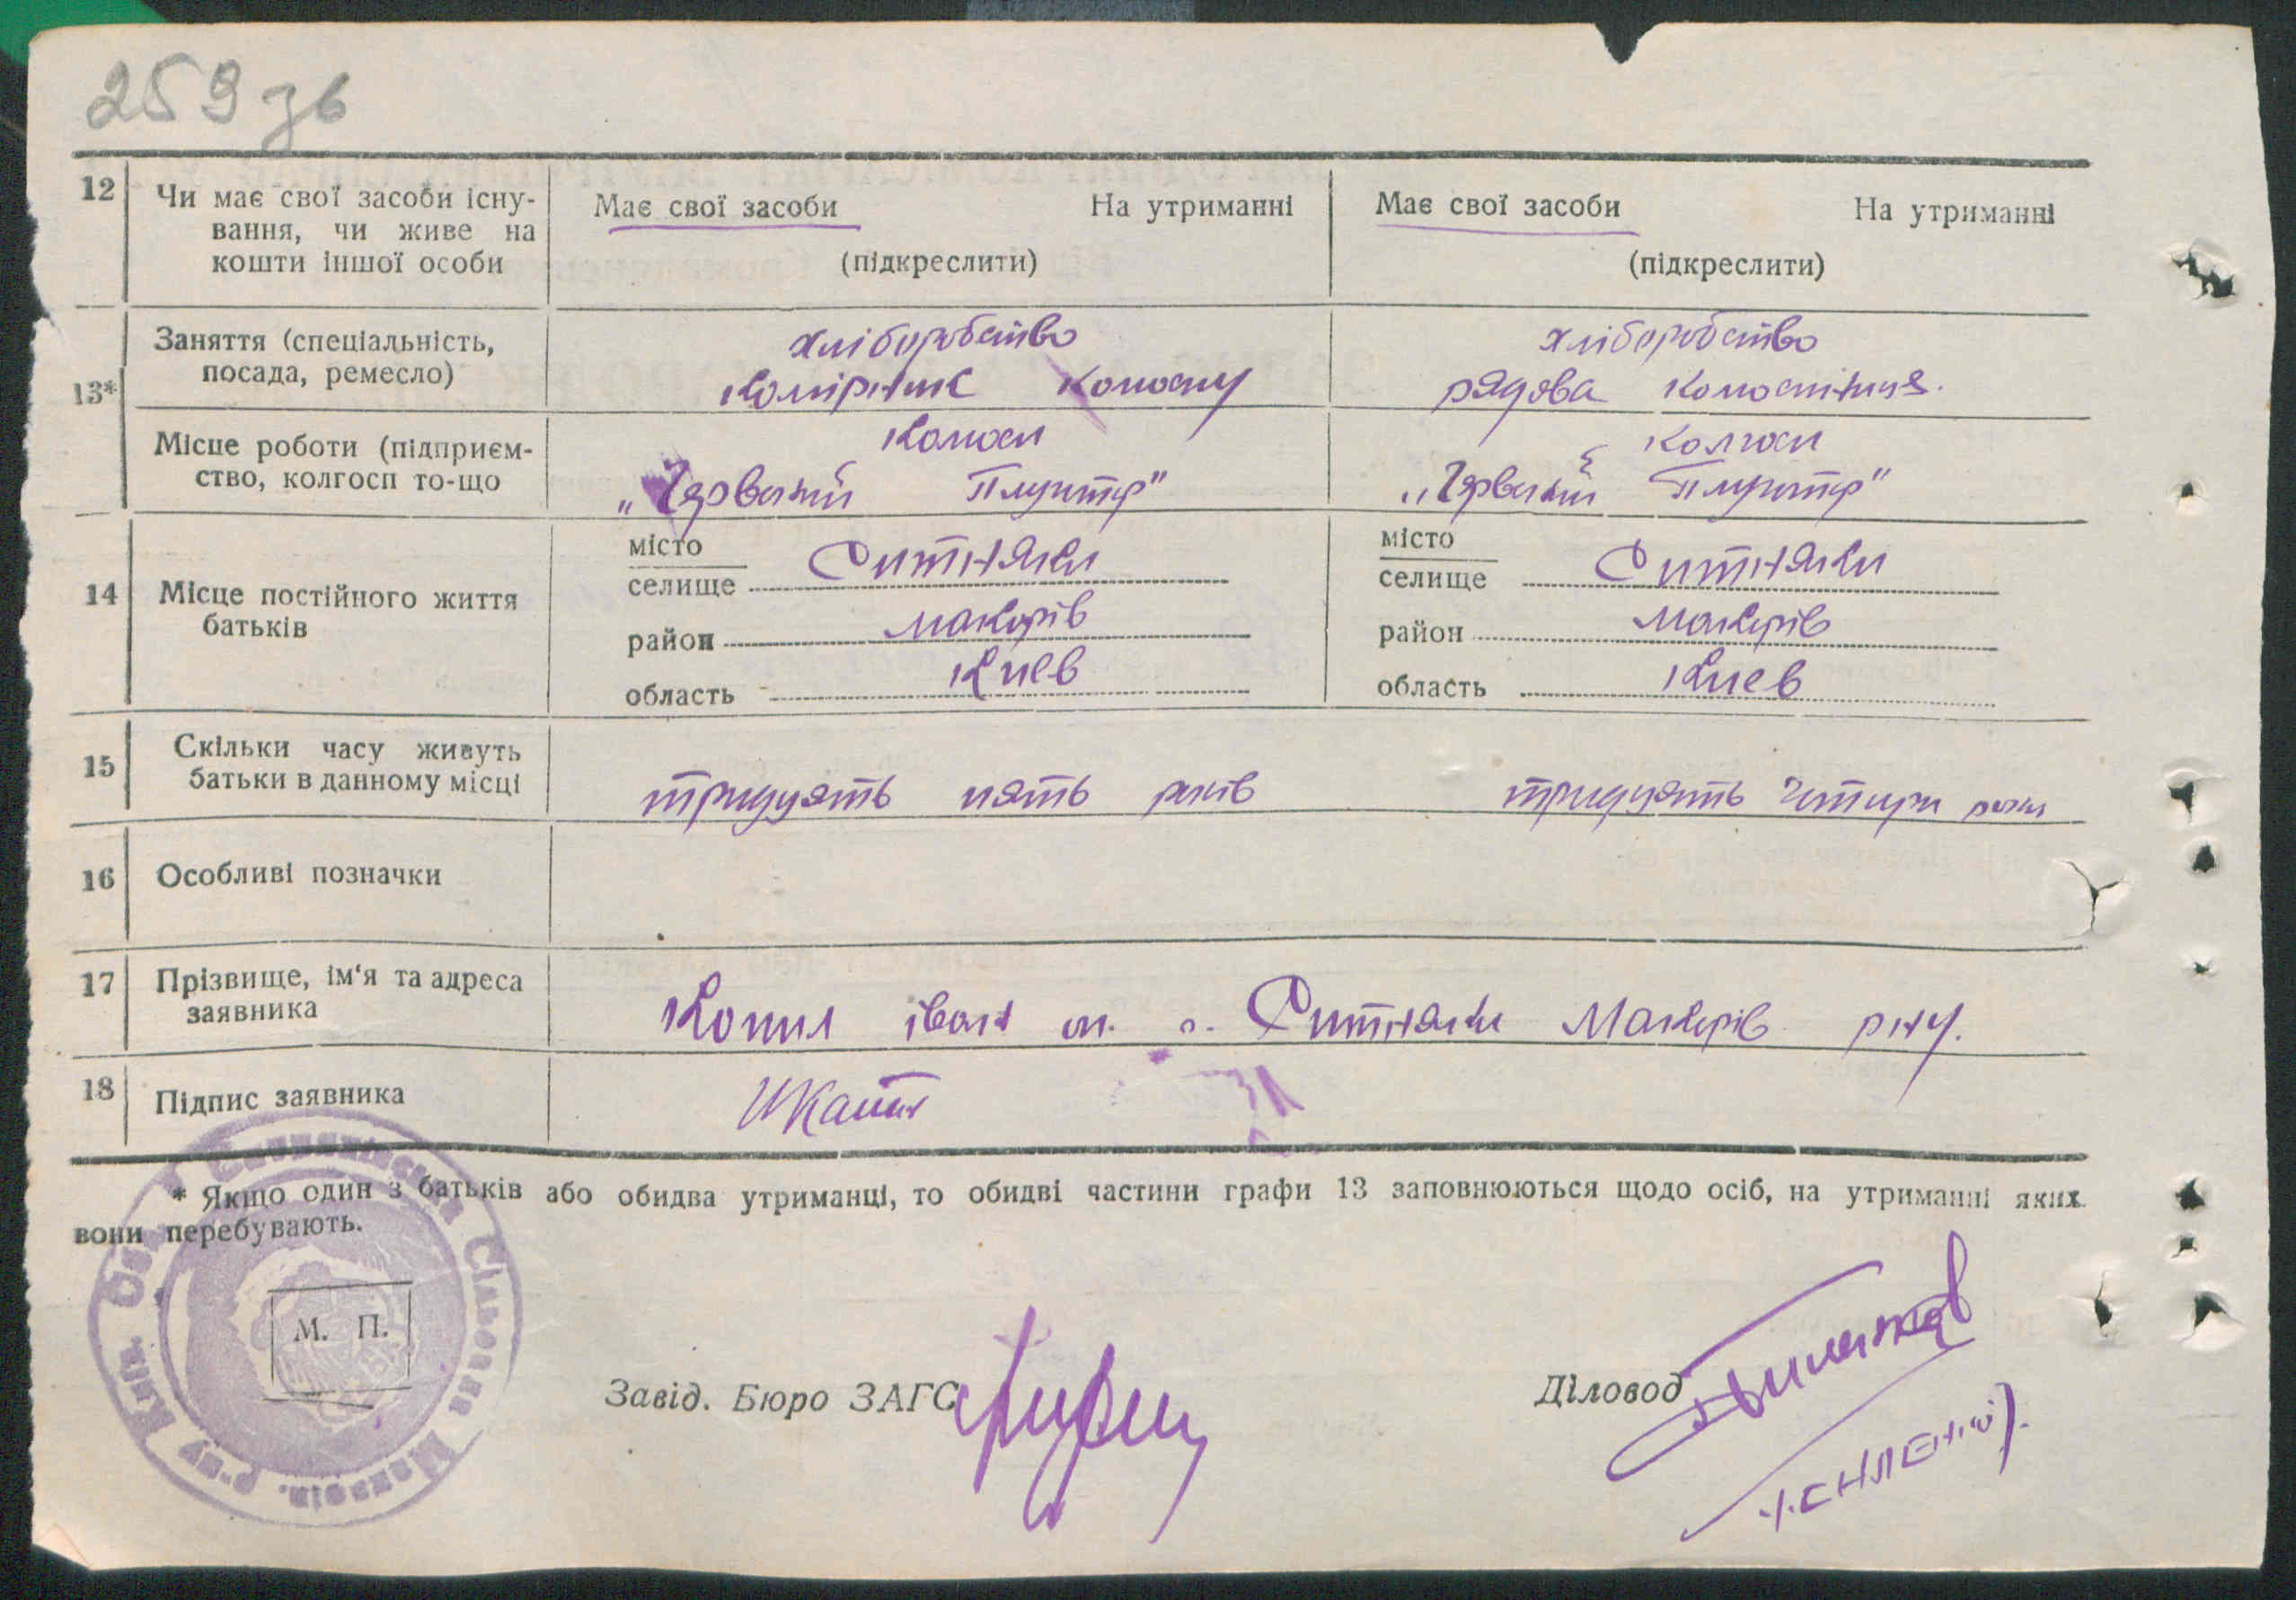 259 зв
12 Чи має свої засоби існу- Має свої засоби На утриманні Має свої засоби На утриманні
вання, чи живе на
кошти іншої особи (підкреслити) (підкреслити)
13* Заняття (спеціальність, хліборобство хліборобство
посада, ремесло) комірник колгоспу рядова колгоспниця.
Місце роботи (підприєм- колгосп колгосп
ство, колгосп то-що „Червоний
14 Місце постійного життя
батьків
місто
селище Ситняки
район Макарів
область Киев
місто
селище Ситняки
район Макарів
область Киев
15 Скільки часу живуть
батьки в данному місці тридцять пять років тридцять чотири роки
16 Особливі позначки
17 Прізвище, ім‘я та адреса
заявника Копил іван с. Ситняки Макарів р-ну.
18 Підпис заявника
* Якщо один з батьків або обидва утриманці, то обидві частини графи 13 заповнюються щодо осіб, на утриманні яких
вони перебувають.
М. П.
Сільська Макарів. р-ну Київ.
Завід. Бюро ЗАГС
Діловод